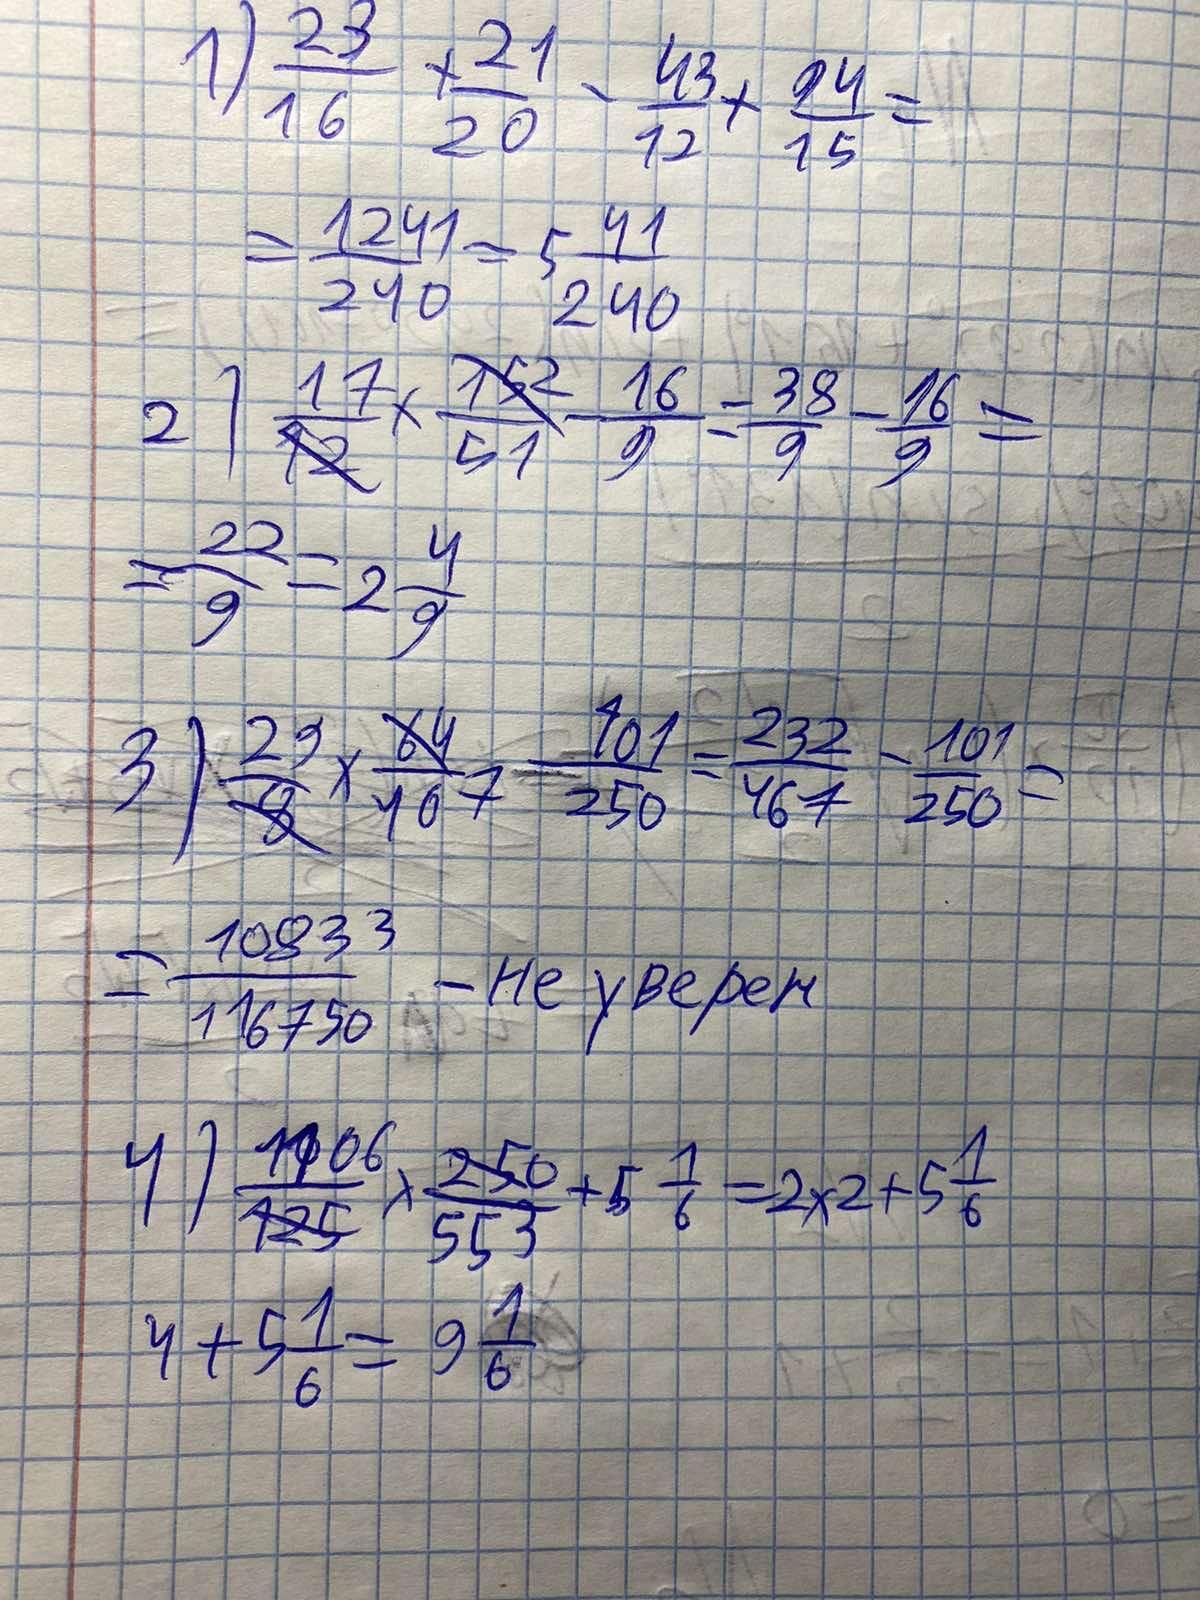 1) 23/16 × 21/20 - 43/12 × 94/15 =
= 1241/240 = 5 41/240
2) 17/12 × 152/51 - 16/9 = 38/9 - 16/9 =
= 22/9 = 2 4/9
3) 29/8 × 64/467 - 101/250 = 232/467 - 101/250 =
= 10833/116750 - не уверен
4) 1106/125 × 250/553 + 5 1/6 = 2×2+5 1/6
4 + 5 1/6 = 9 1/6